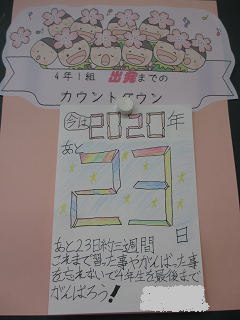 4年1組 出発までの
カウントダウン
今は2020年
あと
23
日
あと23日約三週間
これまで習った事やがんばった事
を忘れないで4年生を最後まで
がんばろう!